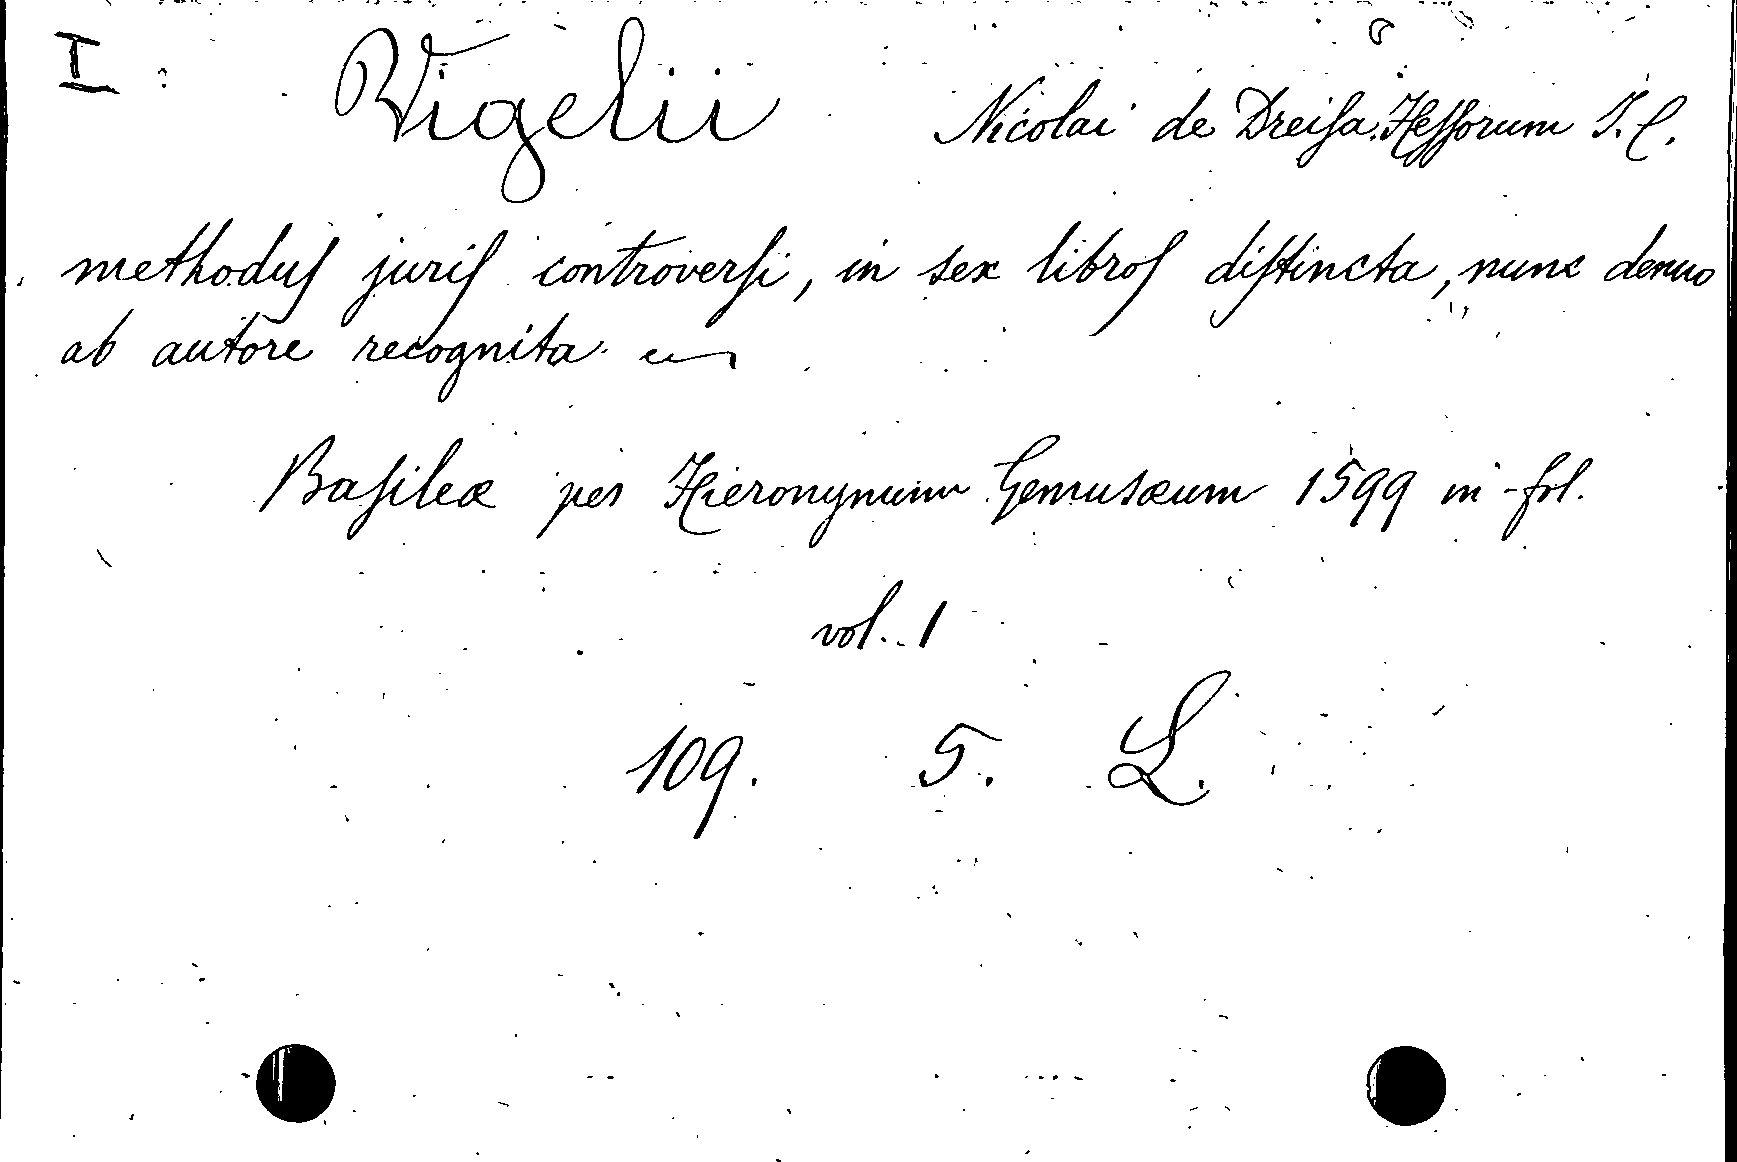 I Vigelii Nicolai de Dreiſa Heſſorum J. C.
methoduſ juriſ controverſi, in sex libroſ diſtincta, nunc denuo
ab autore recognita
Baſileæ per Hieronymum Gemusæum 1599 in-fol.
vol. 1
109. 5. L.